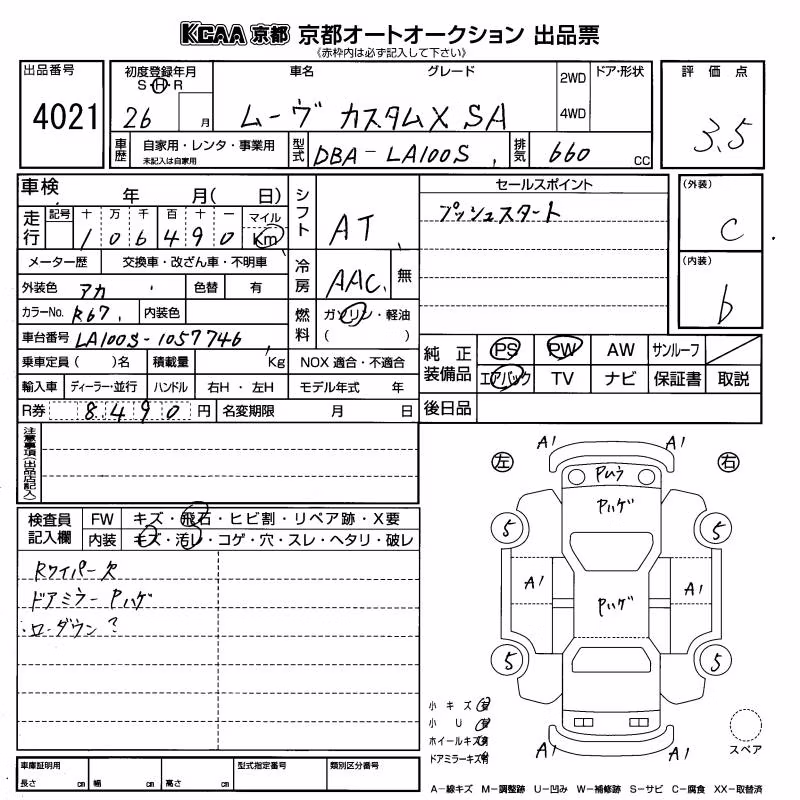 KCAA 京都 京都オートオークション 出品票
《赤枠内は必ず記入して下さい》
出品番号
4021
初度登録年月
S・H・R
26 月
車名 グレード
ムーヴ カスタムX SA
2WD
4WD
ドア・形状
評価点
3.5
車歴
自家用・レンタ・事業用
未記入は自家用
型式
DBA-LA100S
排気
660 CC
車検 年 月( 日)
走行
記号 十 万 千 百 十 一 マイル
1 0 6 4 9 0 Km
シフト
AT
セールスポイント
プッシュスタート
(外装)
C
(内装)
b
メーター歴 交換車・改ざん車・不明車
外装色 アカ 色替 有
冷房
AAC 無
カラーNo. R67 内装色
燃料
ガソリン・軽油
( )
車台番号 LA100S-1057746
乗車定員( )名 積載量 Kg NOX 適合・不適合
輸入車 ディーラー・並行 ハンドル 右H・左H モデル年式 年
R券 8,490 円 名変期限 月 日
純正装備品
PS PW AW サンルーフ
エアバック TV ナビ 保証書 取説
後日品
注意事項(出品店記入)
検査員記入欄
FW キズ・飛石・ヒビ割・リペア跡・X要
内装 キズ・汚レ・コゲ・穴・スレ・ヘタリ・破レ
Rワイパー欠
ドアミラーPハゲ
ローダウン?
左 右
A1 A1
Pハゲ
5 5
A1 A1
Pハゲ
5 5
A1 A1
小キズ
小U
ホイールキズ
ドアミラーキズ
スペア
車庫証明用
長さ cm 幅 cm 高さ cm
型式指定番号
類別区分番号
A-線キズ M-調整跡 U-凹み W-補修跡 S-サビ C-腐食 XX-取替済